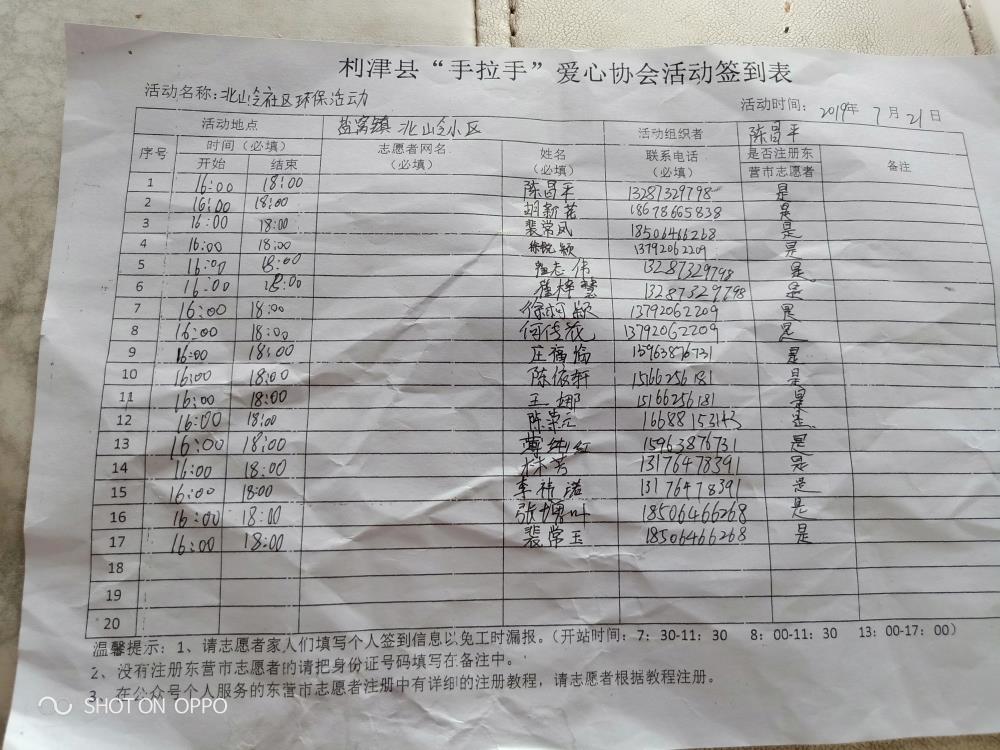 利津县“手拉手”爱心协会活动签到表
活动名称：北岭社区环保活动 活动时间：2019年7月21日
活动地点 盐窝镇 北岭小区 活动组织者 陈昌平
序号 时间（必填） 志愿者网名（必填） 姓名（必填） 联系电话（必填） 是否注册东营市志愿者 备注
开始 结束
1 16:00 18:00 陈昌平 13287329798 是
2 16:00 18:00 胡新花 18678665838 是
3 16:00 18:00 裴常凤 18506466268 是
4 16:00 18:00 13792062209 是
5 16:00 18:00 志伟 13287329798 是
6 16:00 18:00 梓慧 13287329798 是
7 16:00 18:00 徐柯颖 13792062209 是
8 16:00 18:00 何佳 13792062209 是
9 16:00 18:00 庄福临 15963876731 是
10 16:00 18:00 陈依轩 15166256181 是
11 16:00 18:00 王娜 15166256181 是
12 16:00 18:00 陈荣元 是
13 16:00 18:00 薄纯红 15963876731 是
14 16:00 18:00 林芳 13176478391 是
15 16:00 18:00 李祎诺 13176478391 是
16 16:00 18:00 张增叶 18506466268 是
17 16:00 18:00 裴常玉 18506466268 是
18
19
20
温馨提示：1、请志愿者家人们填写个人签到信息以免工时漏报。（开站时间：7：30-11：30 8：00-11：30 13：00-17：00）
2、没有注册东营市志愿者的请把身份证号码填写在备注中。
3、在公众号个人服务的东营市志愿者注册中有详细的注册教程，请志愿者根据教程注册。
SHOT ON OPPO